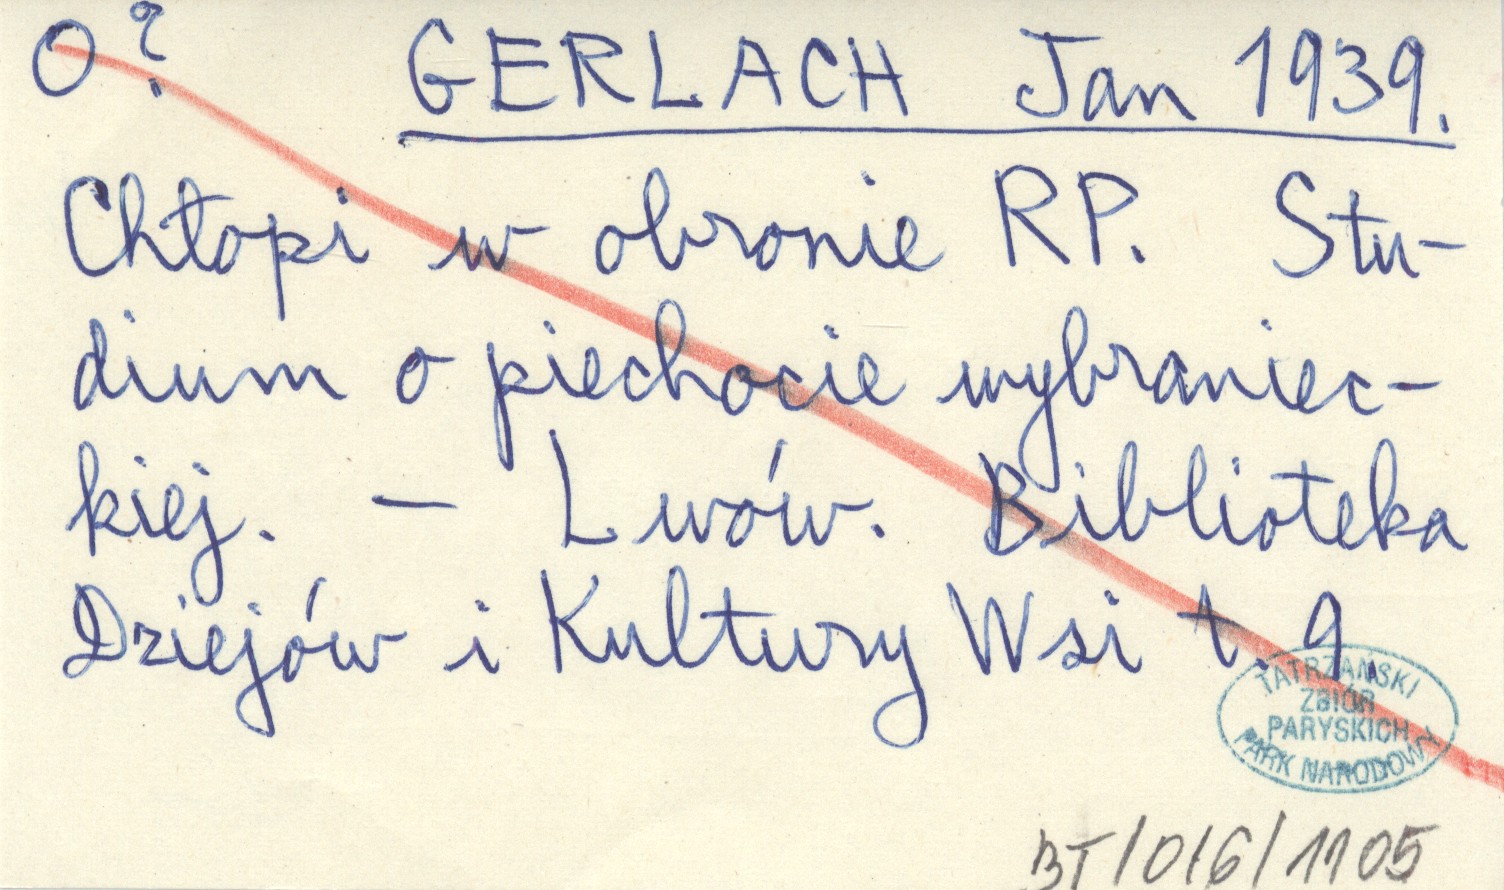 O? GERLACH Jan 1939.
Chłopi w obronie RP. Stu-
dium o piechocie wybraniec-
kiej. – Lwów. Biblioteka
Dziejów i Kultury Wsi t. 9.
TATRZAŃSKI
ZBIÓR
PARYSKICH
PARK NARODOWY
BT/016/1105